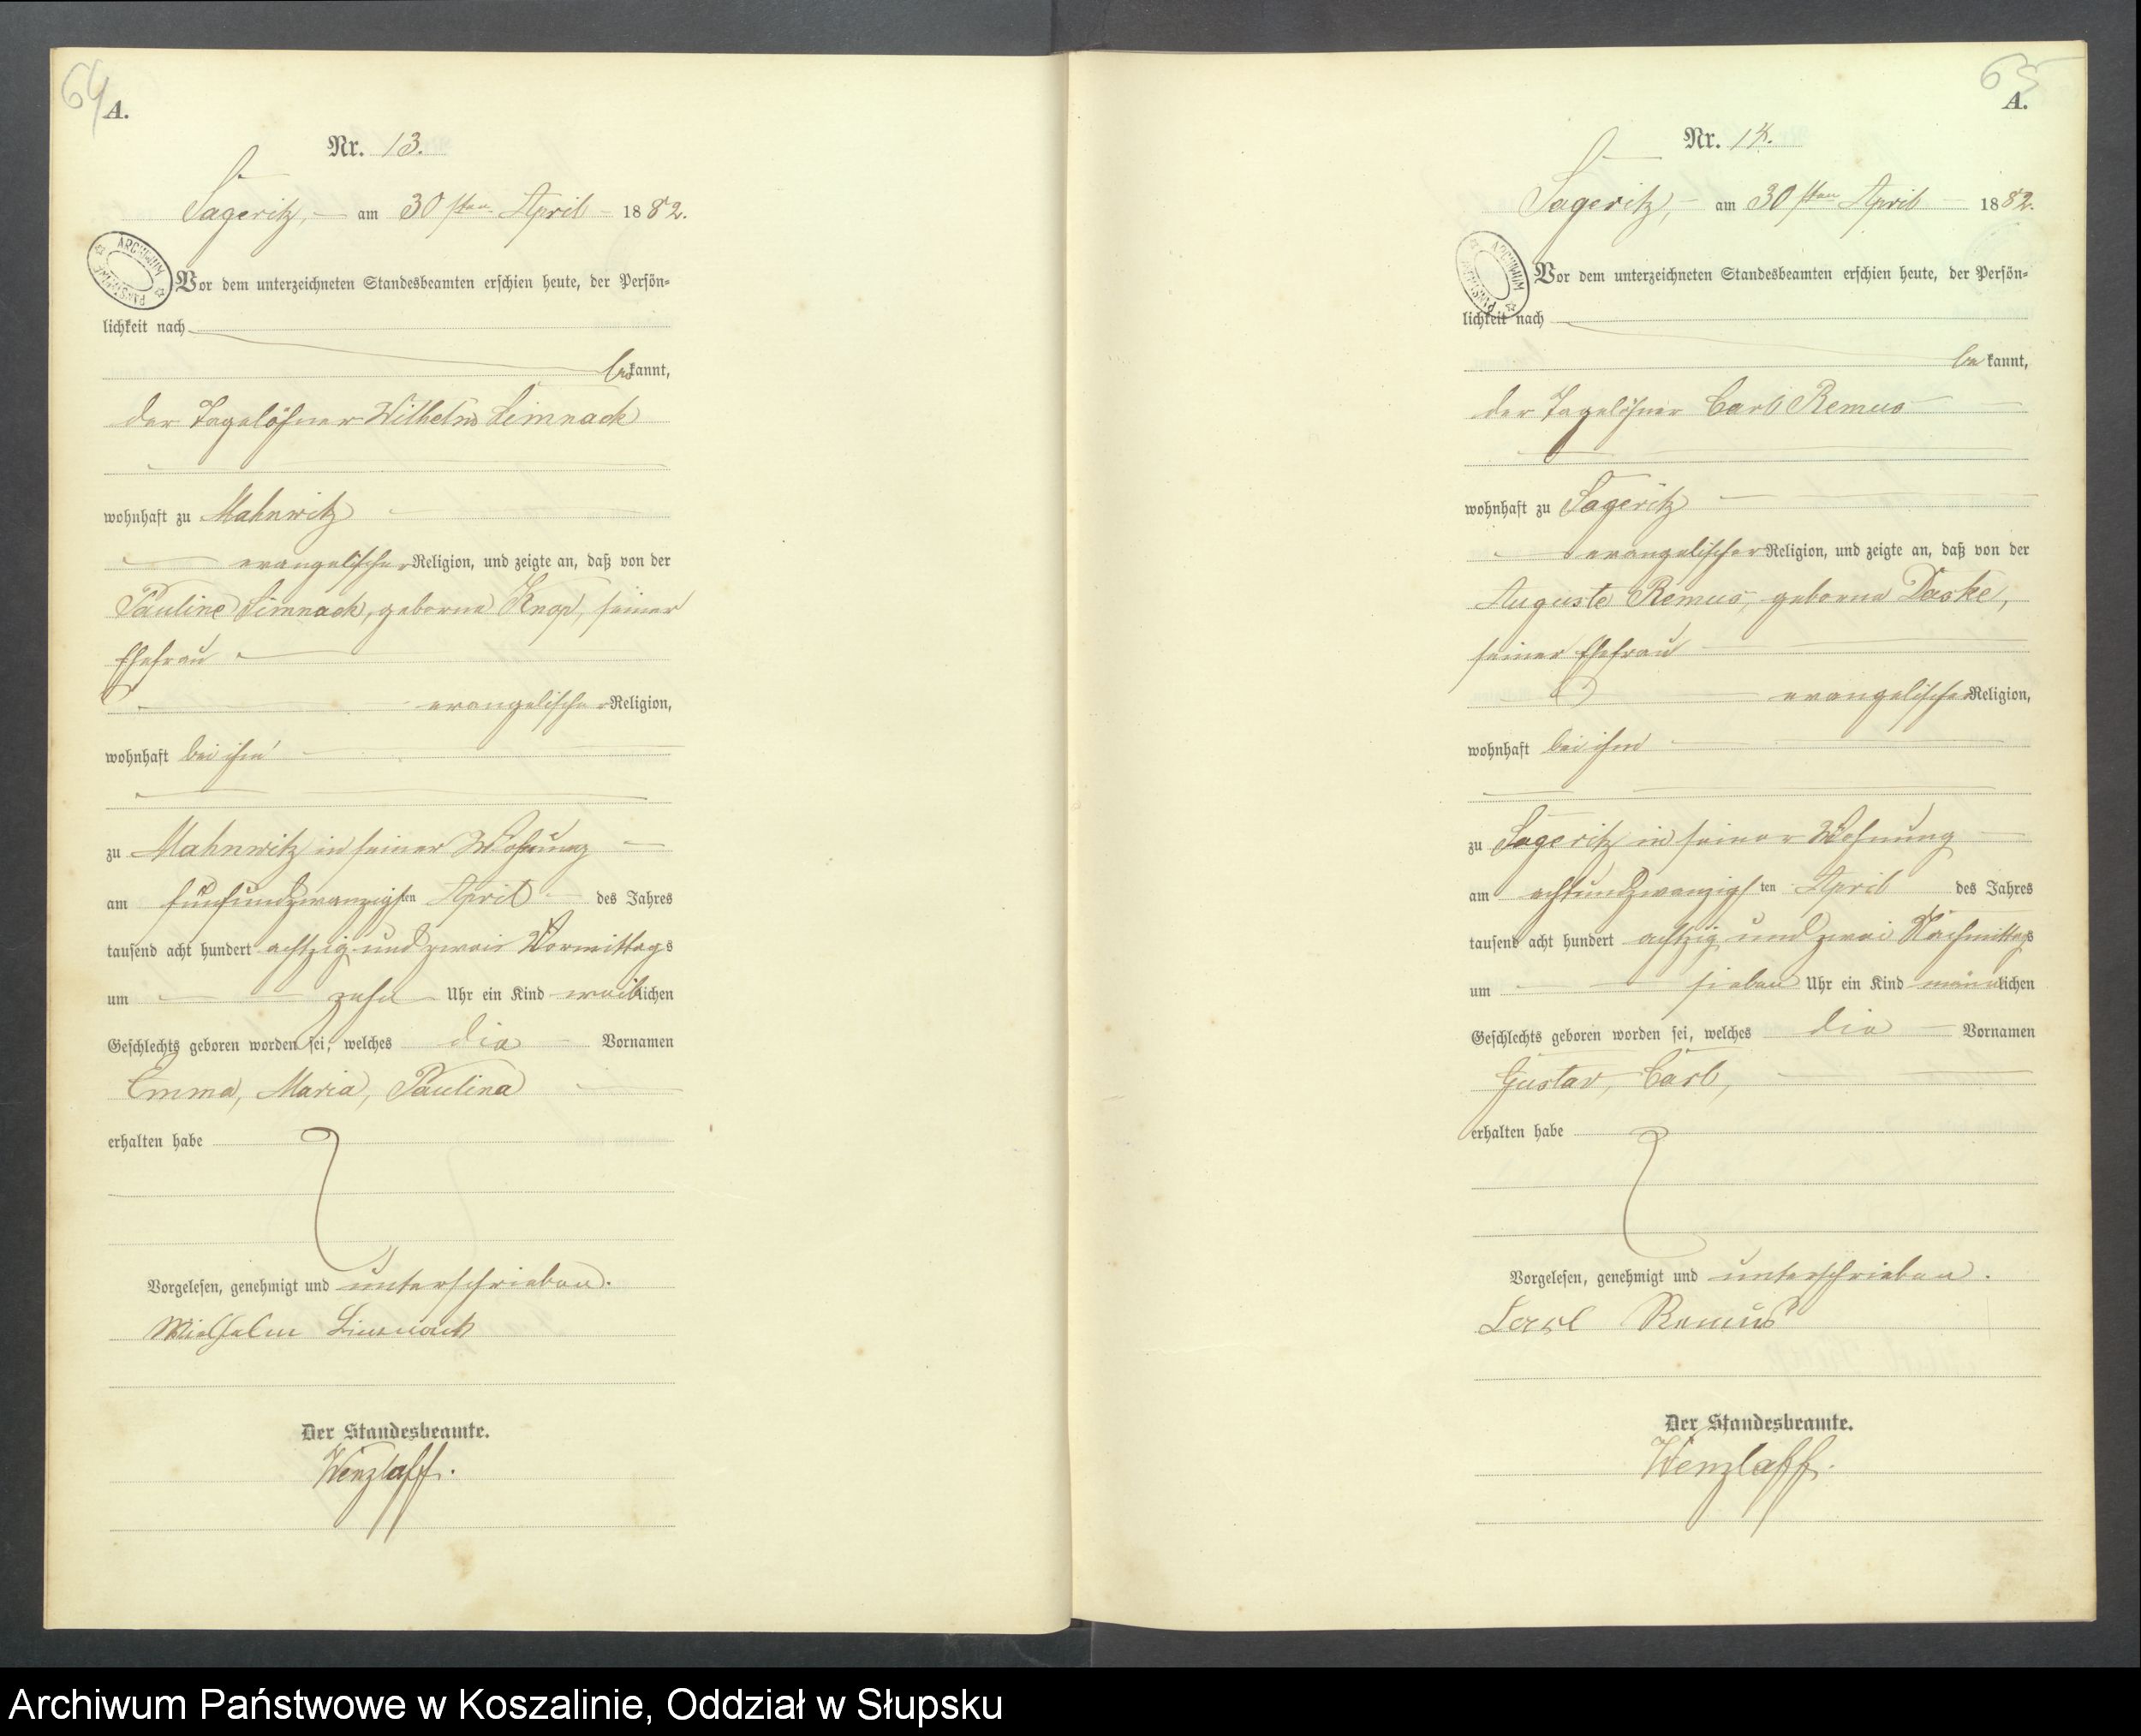 64
A.
Nr. 13.
Sageritz, am 30sten April 1882.
ARCHIWUM PAŃSTWOWE
Vor dem unterzeichneten Standesbeamten erschien heute, der Persön-
lichkeit nach
bekannt,
der Tagelöhner Wilhelm Limnack
wohnhaft zu Mahnwitz
evangelischer Religion, und zeigte an, daß von der
Pauline Limnack, geborne Knop, seiner
Ehefrau
evangelischer Religion,
wohnhaft bei ihm
zu Mahnwitz in seiner Wohnung
am fünfundzwanzigsten April des Jahres
tausend acht hundert achtzig und zwei Vormittags
um zehn Uhr ein Kind weiblichen
Geschlechts geboren worden sei, welches die Vornamen
Emma, Maria, Paulina
erhalten habe
Vorgelesen, genehmigt und unterschrieben.
Wilhelm Limnack
Der Standesbeamte.
Wenzlaff.
65
A.
Nr. 14.
Sageritz, am 30sten April 1882.
ARCHIWUM PAŃSTWOWE
Vor dem unterzeichneten Standesbeamten erschien heute, der Persön-
lichkeit nach
bekannt,
der Tagelöhner Carl Remus
wohnhaft zu Sageritz
evangelischer Religion, und zeigte an, daß von der
Auguste Remus, geborne Daske,
seiner Ehefrau
evangelischer Religion,
wohnhaft bei ihm
zu Sageritz in seiner Wohnung
am achtundzwanzigsten April des Jahres
tausend acht hundert achtzig und zwei Nachmittags
um sieben Uhr ein Kind männlichen
Geschlechts geboren worden sei, welches die Vornamen
Gustav, Carl,
erhalten habe
Vorgelesen, genehmigt und unterschrieben.
Carl Remus
Der Standesbeamte.
Wenzlaff.
Archiwum Państwowe w Koszalinie, Oddział w Słupsku